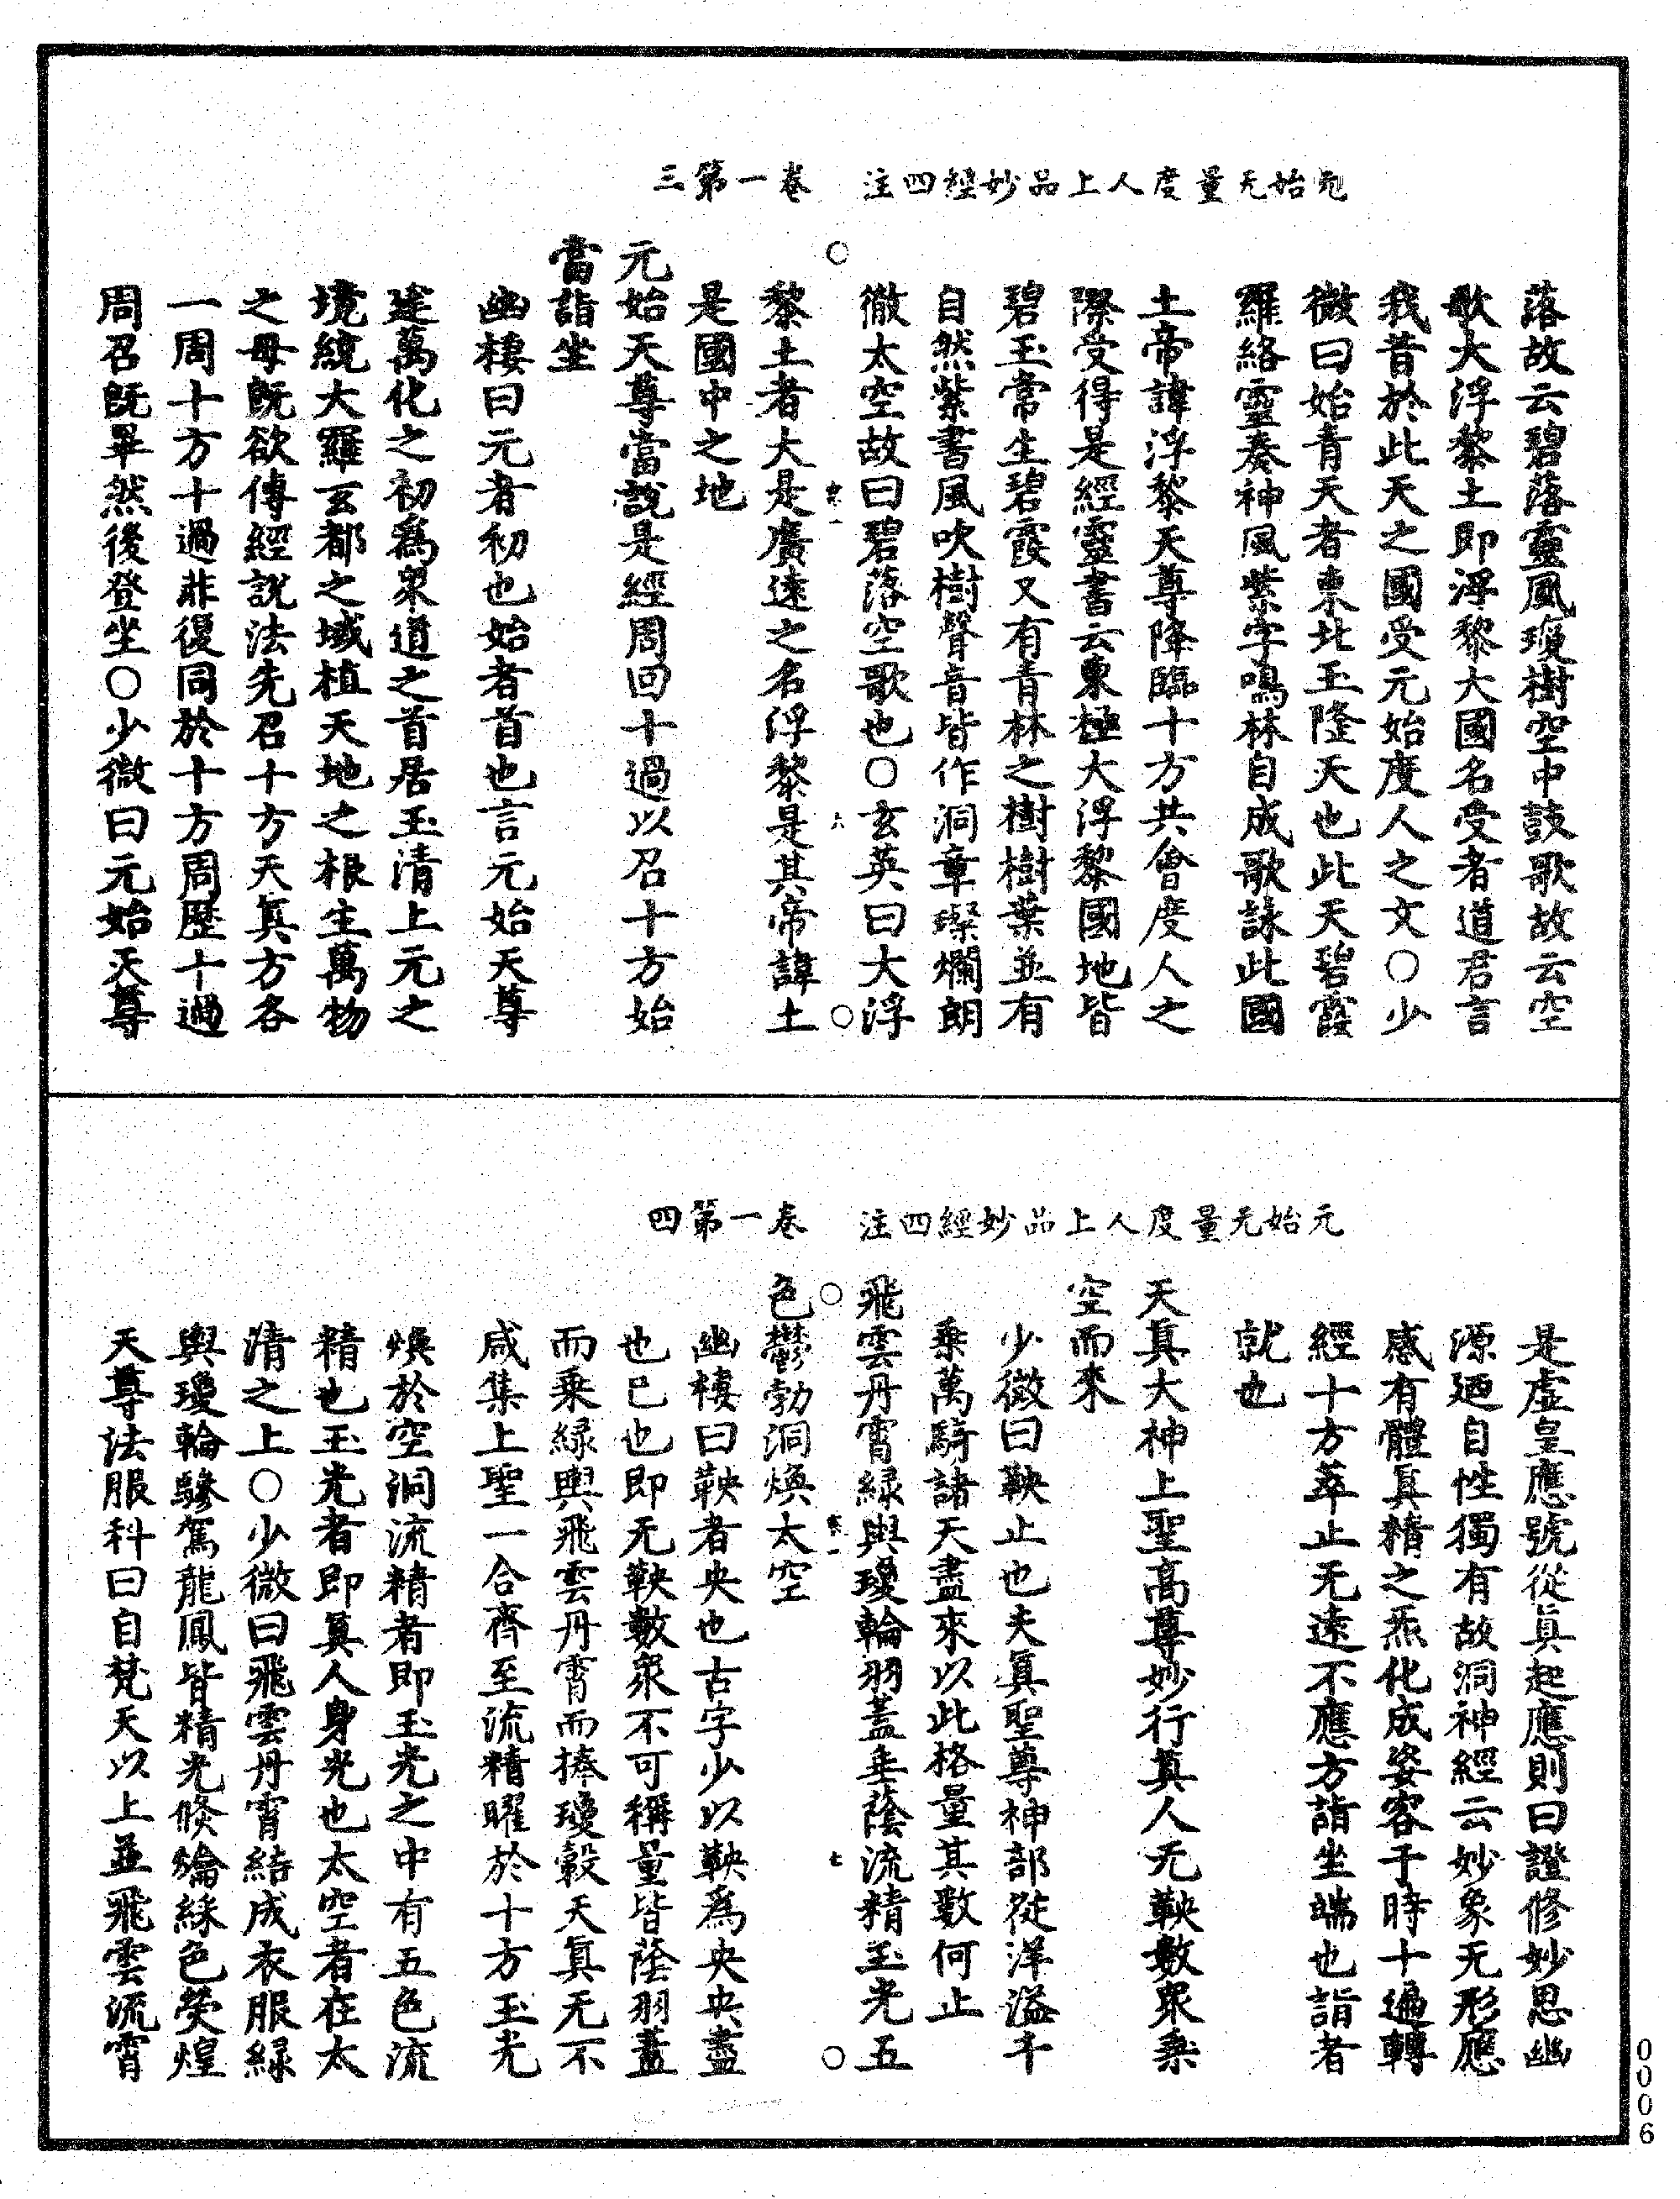 元始无量度人上品妙經四注　卷一第三
落故云碧落靈風瓊樹空中鼓歌故云空
歌大浮黎土即浮黎大國名受者道君言
我昔於此天之國受元始度人之文○少
微曰始青天者東北玉隆天也此天碧霞
羅絡靈奏神風紫字鳴林自成歌詠此國
土帝諱浮黎天尊降臨十方共會度人之
際受得是經靈書云東極大浮黎國地皆
碧玉常生碧霞又有青林之樹樹葉並有
自然紫書風吹樹聲音皆作洞章璨爛朗
徹太空故曰碧落空歌也○玄英曰大浮
○　六　○
黎土者大是廣遠之名浮黎是其帝諱土
是國中之地
元始天尊當說是經周回十過以召十方始
當詣坐
幽棲曰元者初也始者首也言元始天尊
筵萬化之初爲眾道之首居玉清上元之
境統大羅玄都之域植天地之根生萬物
之母既欲傳經說法先召十方天真方各
一周十方十過非復同於十方周歷十過
周召既畢然後登坐○少微曰元始天尊
元始无量度人上品妙經四注　卷一第四
是虛皇應號從真起應則曰證修妙思幽
源廼自性獨有故洞神經云妙象无形應
感有體真精之炁化成姿容于時十遍轉
經十方萃止无遠不應方詣坐端也詣者
就也
天真大神上聖高尊妙行真人无鞅數眾乘
空而來
少微曰鞅止也夫真聖尊神部從洋溢千
乘萬騎諸天盡來以此格量其數何止
飛雲丹霄綠輿瓊輪羽蓋垂蔭流精玉光五
○　七　○
色鬱勃洞煥太空
幽棲曰鞅者央也古字少以鞅爲央央盡
也已也即无鞅數眾不可稱量皆蔭羽蓋
而乘綠輿飛雲丹霄而捧瓊轂天真无不
咸集上聖一合齊至流精曜於十方玉光
煥於空洞流精者即玉光之中有五色流
精也玉光者即真人身光也太空者在太
清之上○少微曰飛雲丹霄結成衣服綠
輿瓊輪驂駕龍鳳皆精光倏爚綵色熒煌
天尊法服科曰自梵天以上並飛雲流霄
0006